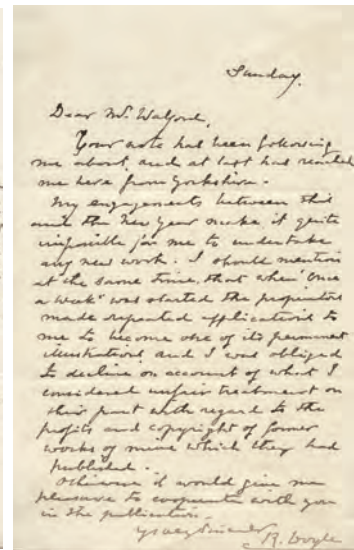 Sunday.
Dear Mr. Walford,
Your note has been following
me about, and at last has reached
me here from Yorkshire.
My engagements between this
and the New Year make it quite
impossible for me to undertake
any new work. I should mention
at the same time, that when "Once
a Week" was started the proprietors
made repeated applications to
me to become one of its permanent
illustrators, and I was obliged
to decline on account of what I
considered unfair treatment on
their part with regard to the
profits and copyright of former
works of mine which they had
published.
Otherwise it would give me
pleasure to cooperate with you
in the publication.
Sincerely
R. Doyle